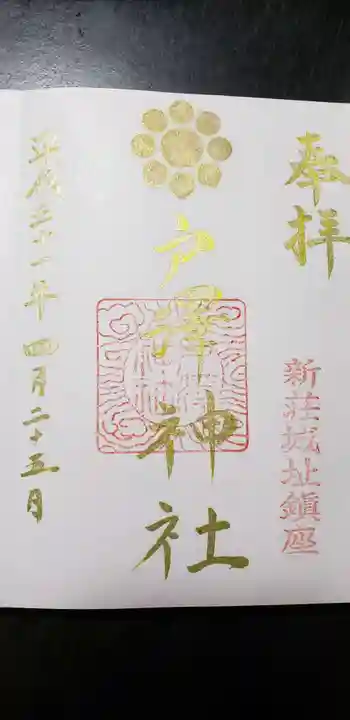 奉拝
新荘城址鎮座
戸澤神社
平成三十一年四月二十五日